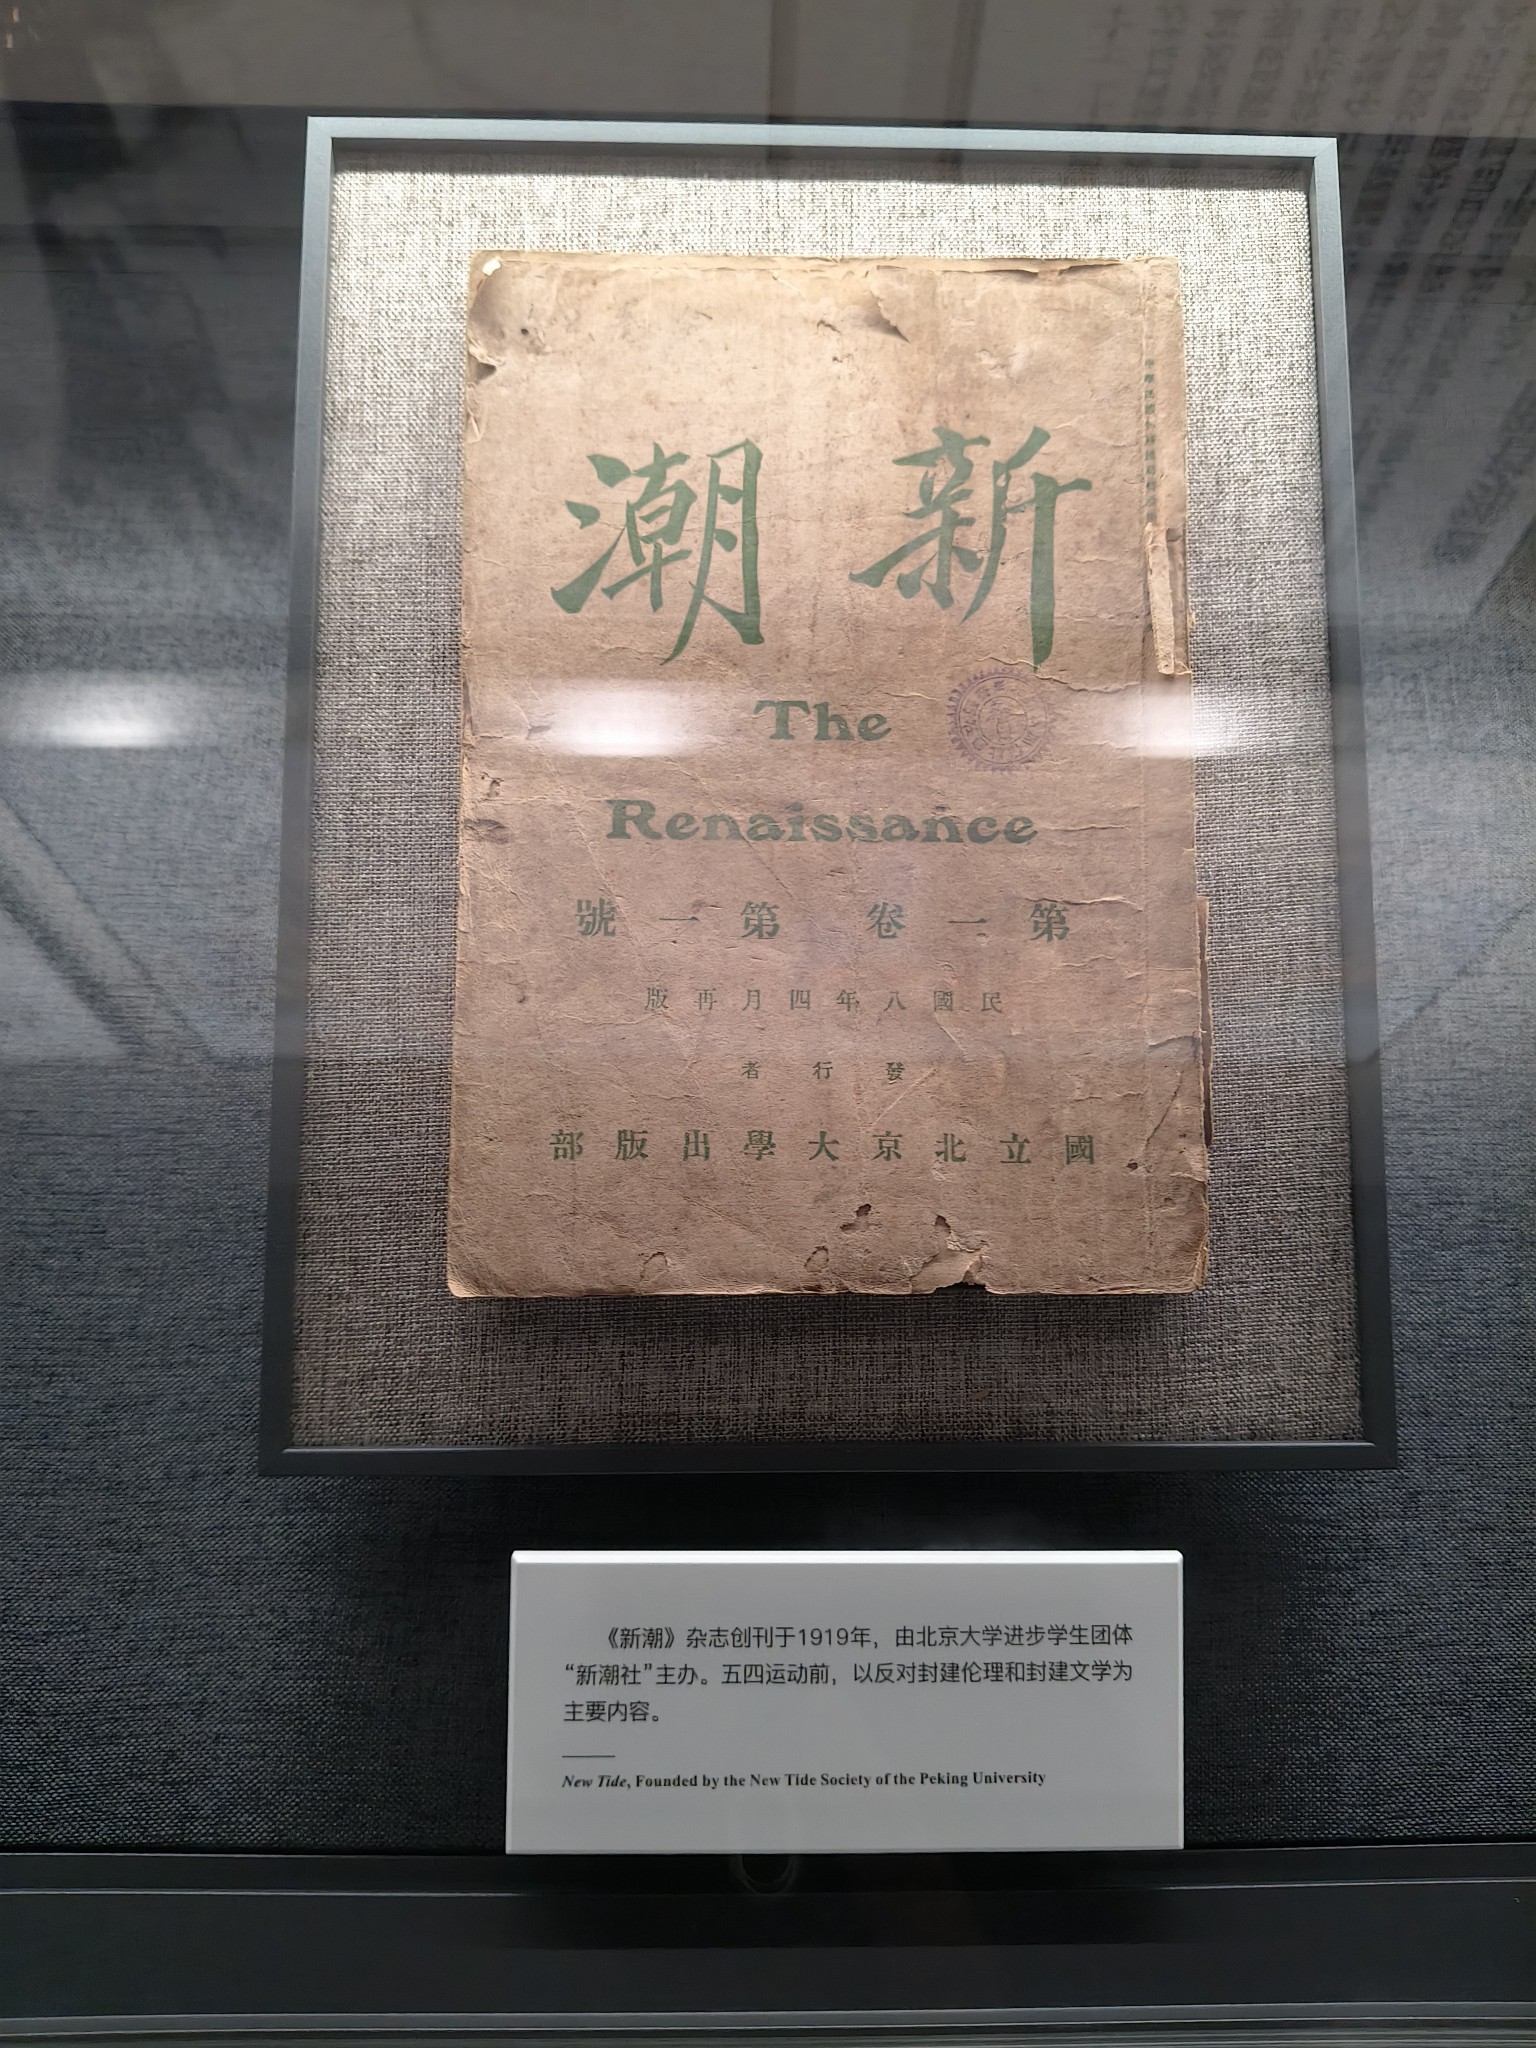 新潮
The
Renaissance
第一卷 第一號
民國八年四月再版
發行者
國立北京大學出版部
《新潮》杂志创刊于1919年，由北京大学进步学生团体
“新潮社”主办。五四运动前，以反对封建伦理和封建文学为
主要内容。
New Tide, Founded by the New Tide Society of the Peking University